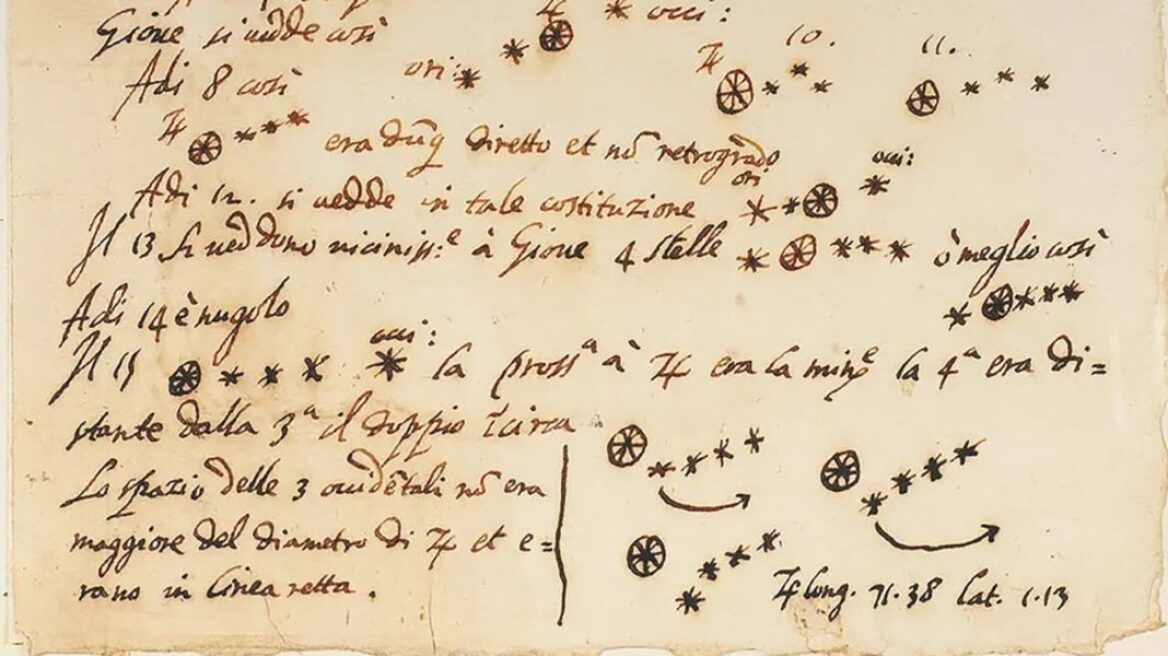 Gioue si uedde così ♃ occi:
Adi 8 così ori: ♃ 10. 11.
♃ era dūq diretto et nō retrogrado
Adi 12. si uedde in tale costituzione ori occi:
Il 13 si ueddono uiciniss:ᵉ à Gioue 4 stelle ò meglio così
Adi 14 è nugolo
Il 15 occi: la prossᵃ à ♃ era la minᵉ la 4ᵃ era di=
stante dalla 3ᵃ il doppio ī circa
Lo spazio delle 3 occidētali nō era
maggiore del diametro di ♃ et e=
rano in linea retta.
♃ long. 71.38 lat. 1.13